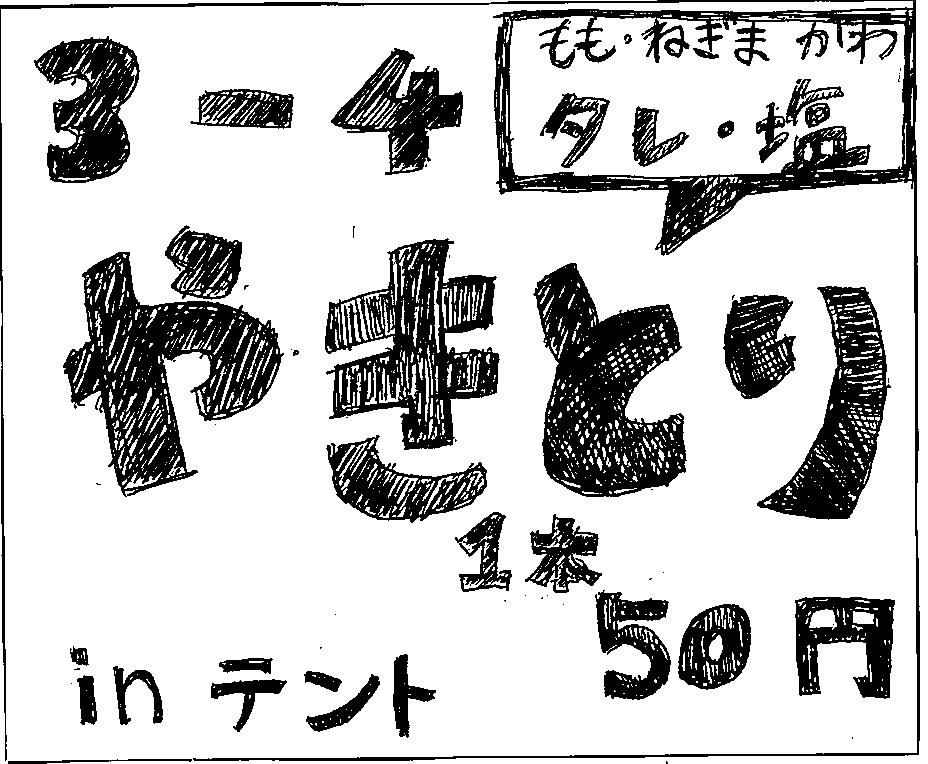 3-4
もも・ねぎま かわ
タレ・塩
やきとり
1本
50円
in テント